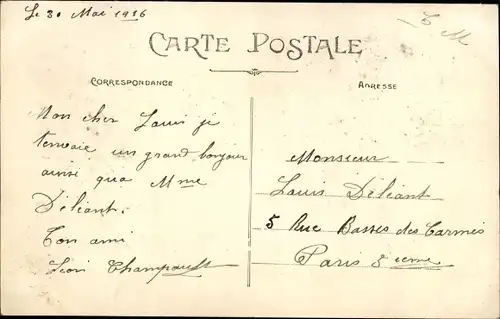 Le 30 Mai 1916
F M
CARTE POSTALE
CORRESPONDANCE
ADRESSE
Mon cher Louis je
tenvoie un grand bonjour
ainsi que Mme
Déliant.
Ton ami
Léon Champault
Monsieur
Louis Déliant
5 Rue Basses des Carmes
Paris 5 ieme